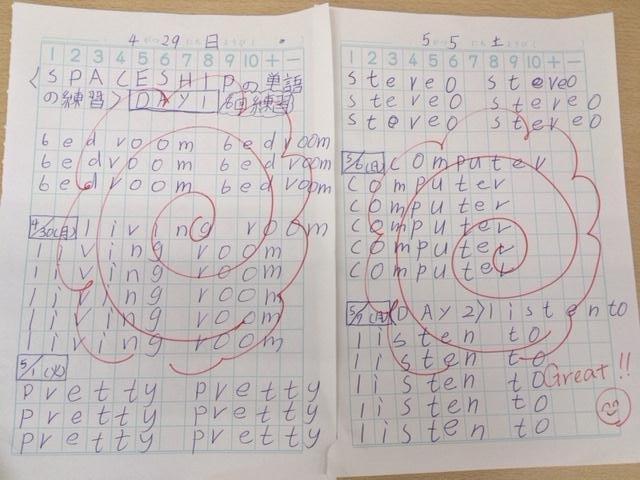 4 がつ 29 にち 日 ようび
1 2 3 4 5 6 7 8 9 10 + −
〈SPACESHIPの単語
の練習〉 DAY1 6回練習
bedroom bedroom
bedroom bedroom
bedroom bedroom
4/30(月) living room
living room
living room
living room
living room
living room
5/1(火)
pretty pretty
pretty pretty
pretty pretty
5 がつ 5 にち 土 ようび
1 2 3 4 5 6 7 8 9 10 + −
stereo stereo
stereo stereo
stereo stereo
computer
computer
computer
computer
computer
computer
〈DAY2〉listen to
listen to
listen to
listen to
Great!!
listen to
listen to